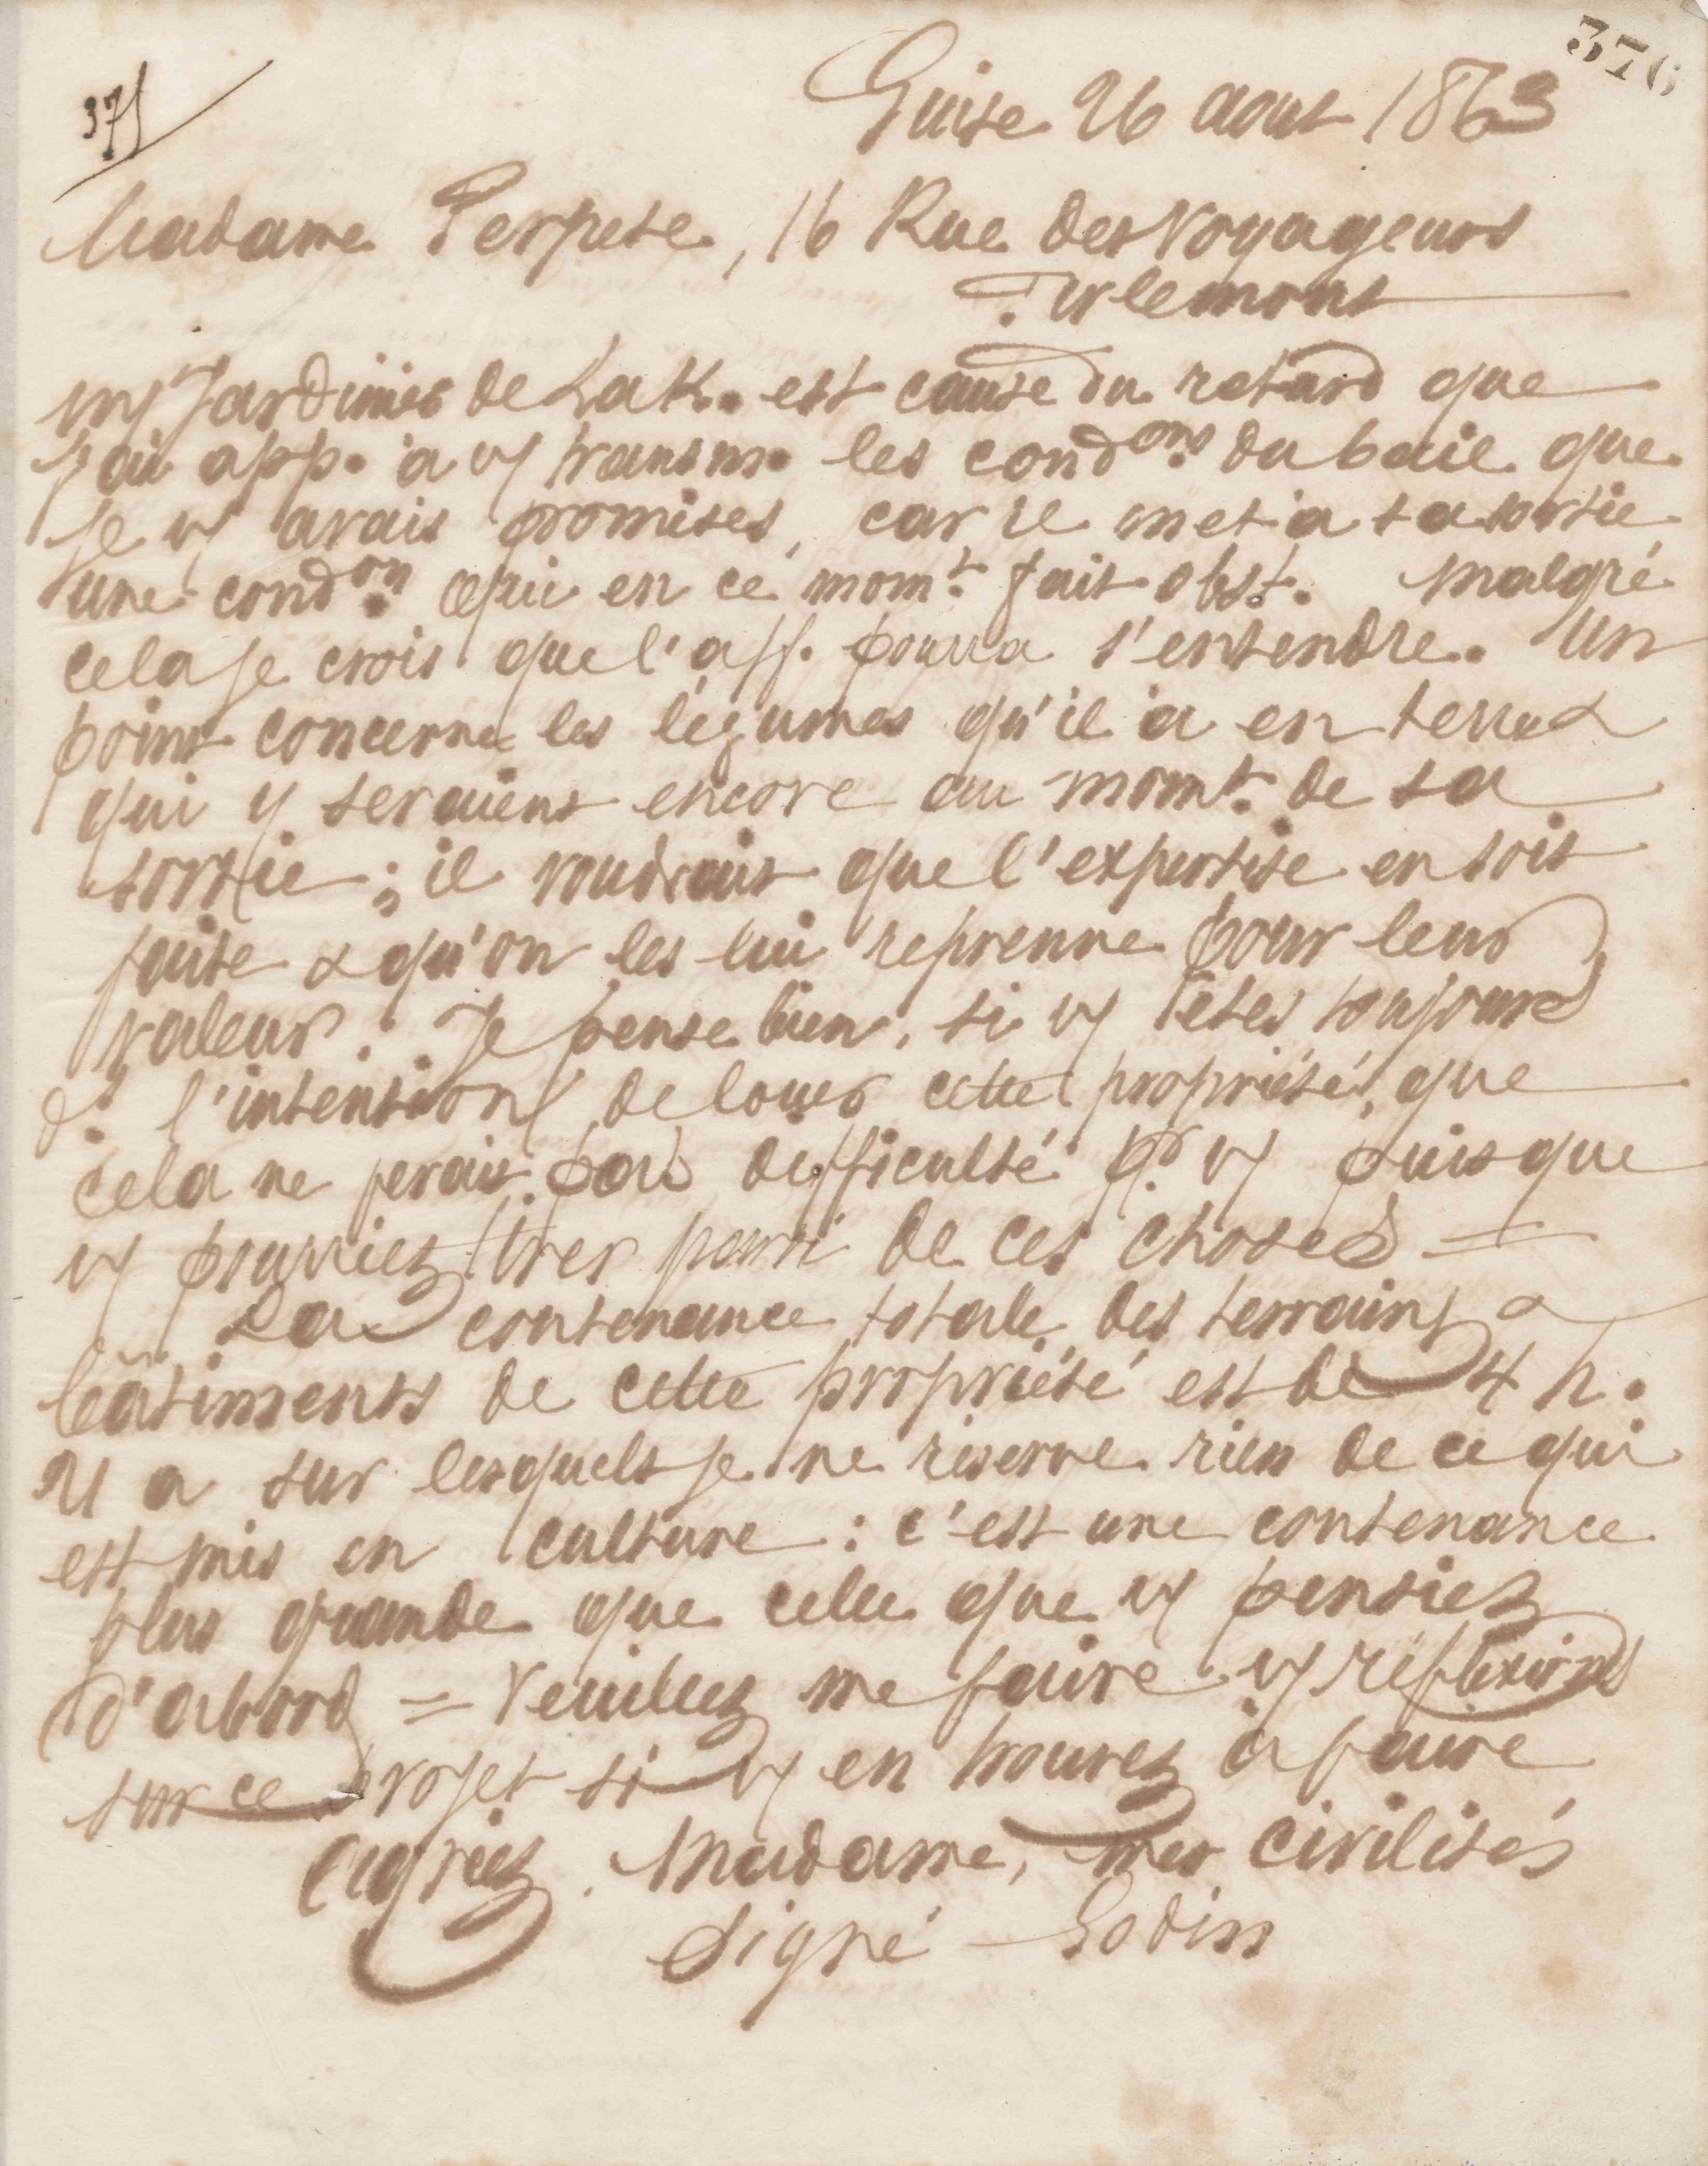 376
375
Guise 26 aout 1863
Madame Perpete, 16 Rue des Voyageurs
Tirlemont
Jardinier de Lak. est cause du retard que
j'ai app. à vs transm. les condons du bail que
je vs avais promises, car il met à sa sortie
une condon qui en ce momt fait obst. Malgré
cela je crois que l'aff. pourra s'entendre. Un
point concerne les légumes qu'il a en terre &
qui y seraient encore au momt de sa
sortie ; il voudrait que l'expertise en soit
faite & qu'on les lui reprenne pour leur
valeur. Je pense bien, si vs êtes toujours
ds l'intention de louer cette propriété, que
cela ne ferait pas difficulté pr vs puisque
vs pourriez de ces choses =
La contenance totale des terrains &
bâtiments de cette propriété est de 4 h.
11 a sur lesquels je ne réserve rien de ce qui
est mis en culture : c'est une contenance
plus grande que celle que vs pensiez
d'abord = Veuillez me faire vs réflexions
sur ce projet si vs en trouvez à faire
Agréez, Madame, mes civilités
Signé Godin